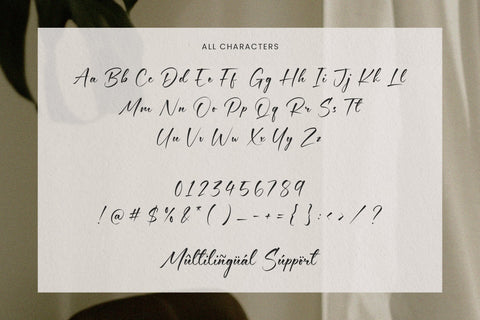 ALL CHARACTERS
Aa Bb Cc Dd Ee Ff Gg Hh Ii Jj Kk Ll
Mm Nn Oo Pp Qq Rr Ss Tt
Uu Vv Ww Xx Yy Zz
0123456789
!@#$%&*()_-+={}:<>/?
Mûltiliñgüál Súppört